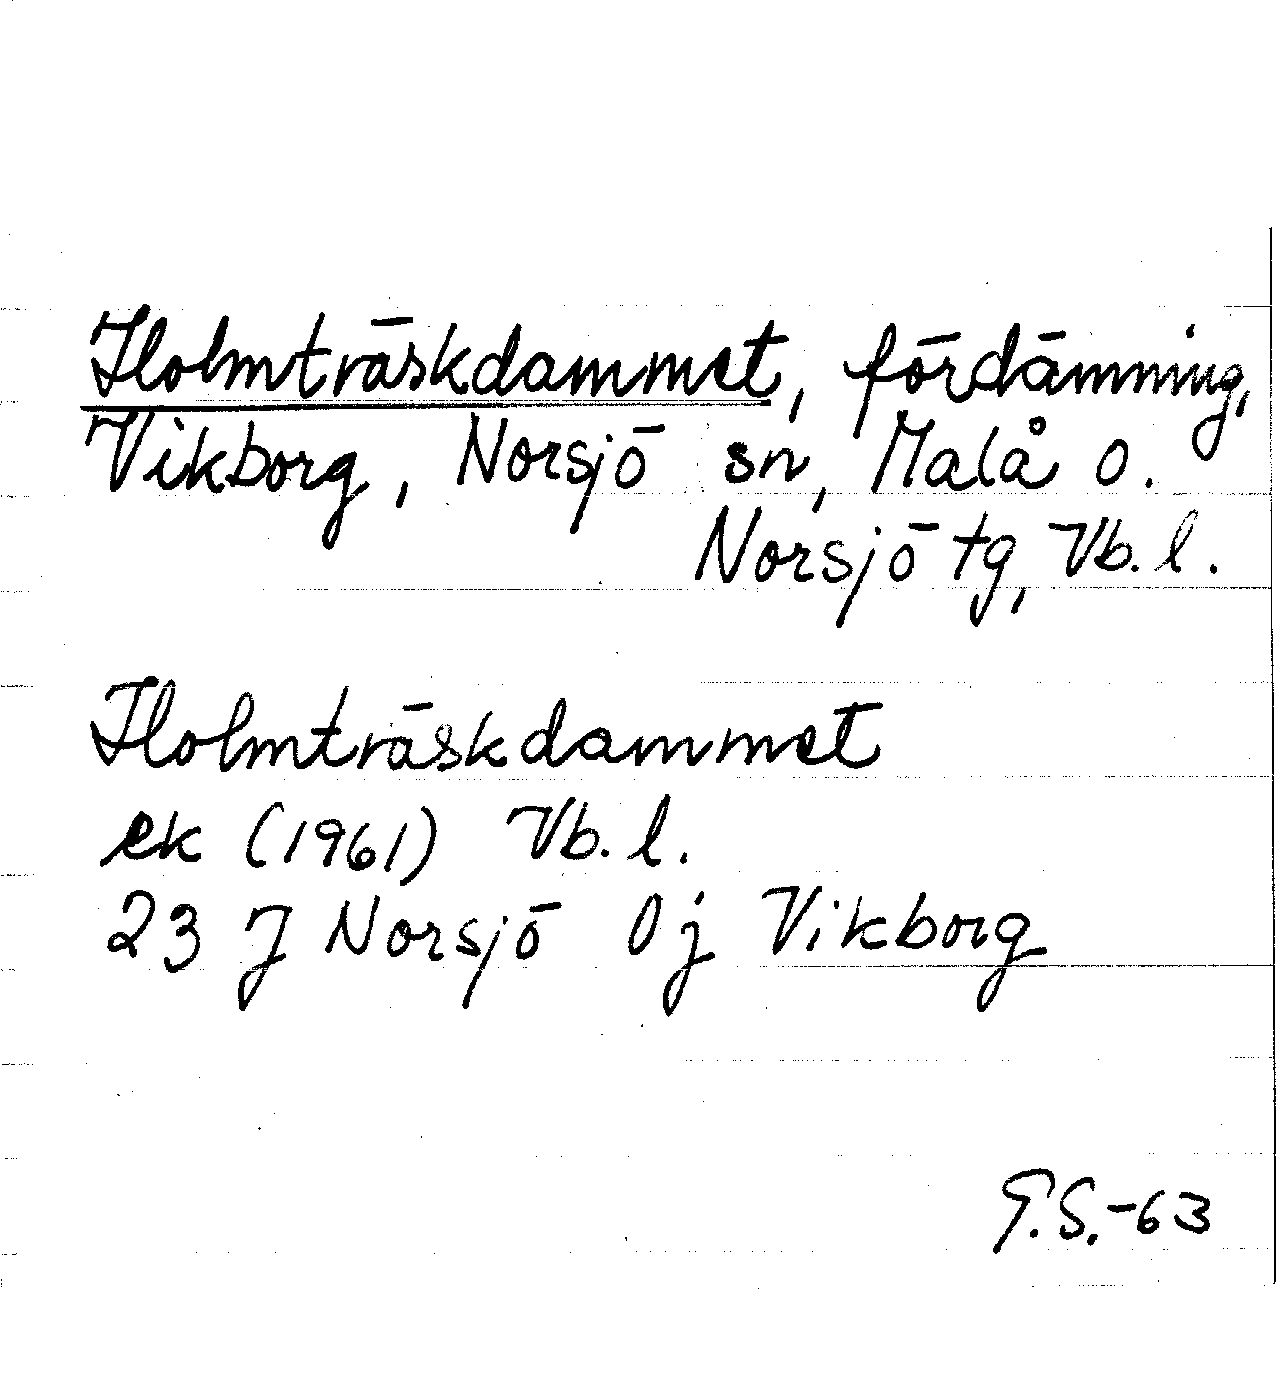 Holmträskdammet, fördämning,
Vikborg, Norsjö sn, Malå o.
Norsjö tg, Vb. l.
Holmträskdammet
ek (1961) Vb. l.
23 J Norsjö 0j Vikborg
G.S.-63